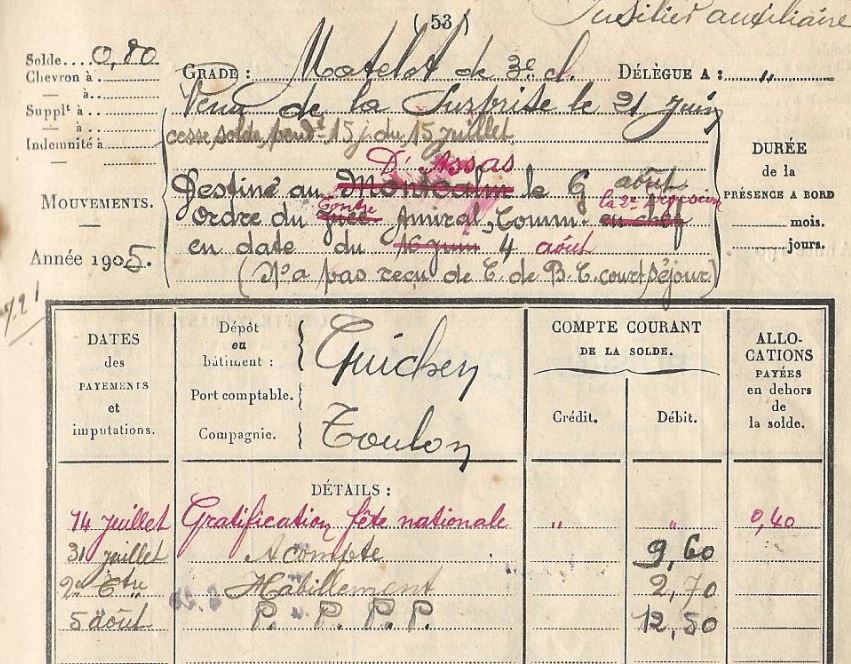 ( 53 )
fusilier auxiliaire
Solde....0,80
Chevron à
à
Supplt à
à
Indemnité à
GRADE : Matelot de 3e cl. DÉLÉGUE A : "
Venu de la Surprise le 21 juin
cesse solde, pendt 15 j. du 15 juillet
D'Assas
Destiné au Montcalm le 6 août
Contre la 2e
Ordre du Amiral, Comm. en chef
en date du 16 juin 4 août
(N'a pas reçu de C. de B. C. court séjour)
MOUVEMENTS.
Année 1905.
DURÉE
de la
PRÉSENCE A BORD
mois.
jours.
DATES
des
PAYEMENTS
et
imputations.
Dépôt
ou
bâtiment :
Port comptable.
Compagnie.
Guichen
Toulon
COMPTE COURANT
DE LA SOLDE.
Crédit.
Débit.
ALLO-
CATIONS
PAYÉES
en dehors
de
la solde.
DÉTAILS :
14 juillet Gratification fête nationale " " 0,40
31 juillet Acompte 9,60
2e Ctre Habillement 2,70
5 août P. P. P. P. 12,50